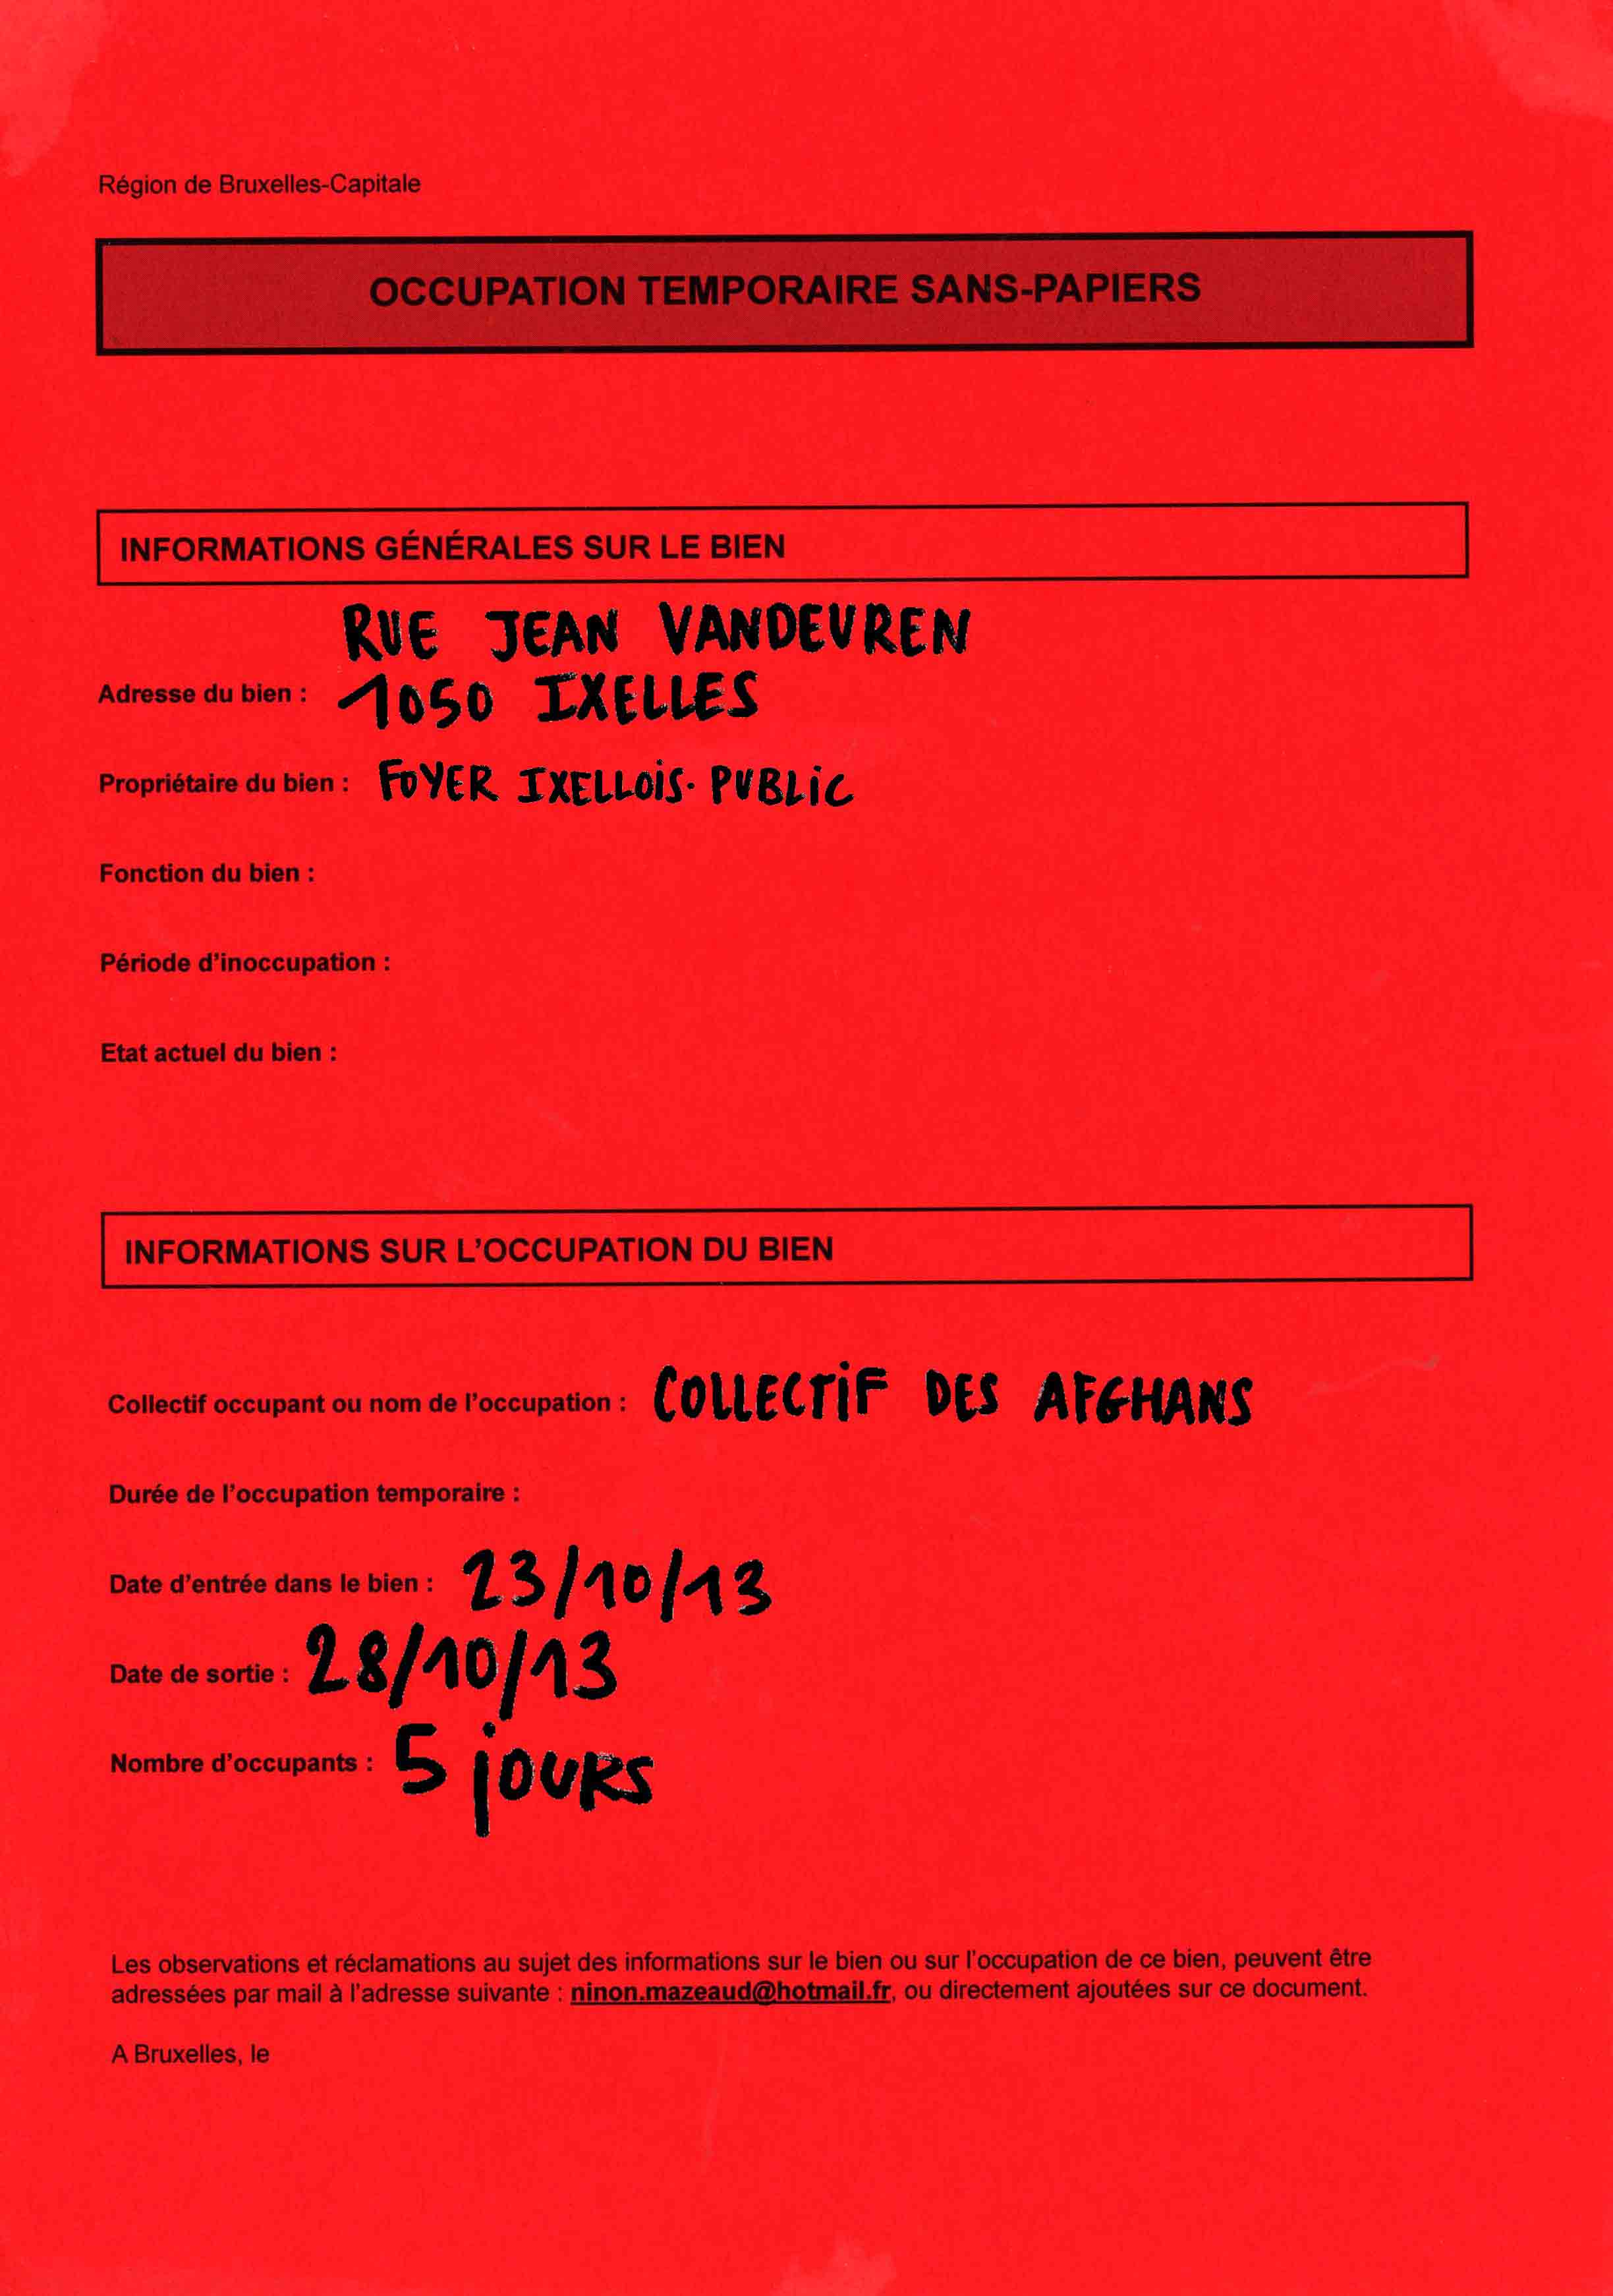 Région de Bruxelles-Capitale
OCCUPATION TEMPORAIRE SANS-PAPIERS
INFORMATIONS GÉNÉRALES SUR LE BIEN
RUE JEAN VANDEUREN
Adresse du bien : 1050 IXELLES
Propriétaire du bien : FOYER IXELLOIS. PUBLIC
Fonction du bien :
Période d'inoccupation :
Etat actuel du bien :
INFORMATIONS SUR L'OCCUPATION DU BIEN
Collectif occupant ou nom de l'occupation : COLLECTIF DES AFGHANS
Durée de l'occupation temporaire :
Date d'entrée dans le bien : 23/10/13
Date de sortie : 28/10/13
Nombre d'occupants : 5 jOURS
Les observations et réclamations au sujet des informations sur le bien ou sur l'occupation de ce bien, peuvent être
adressées par mail à l'adresse suivante : ninon.mazeaud@hotmail.fr, ou directement ajoutées sur ce document.
A Bruxelles, le